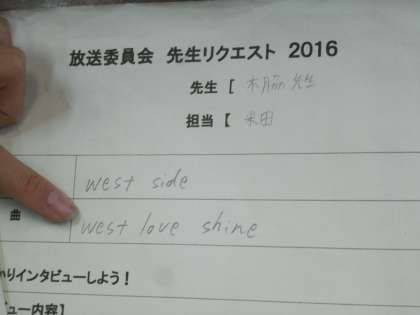 放送委員会 先生リクエスト 2016
先生 [ 木脇先生
担当 [ 米田
west side
曲 west love shine
りインタビューしよう！
ュー内容】